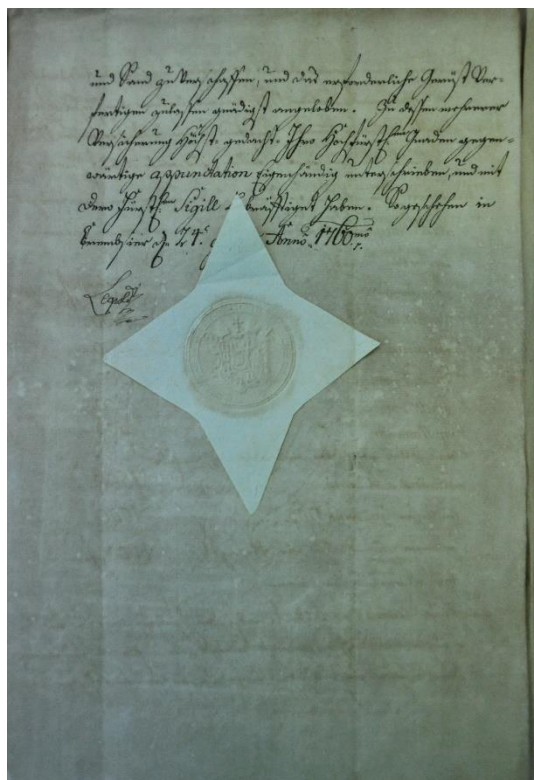 und Sand zu Verschaffen, und das erforderliche Gerüst Ver-
fertigen zulassen gnädigst angeloben. Zu dessen mehrerer
Versicherung Höchst gedacht Ihro Hochfürstl. Gnaden gegen-
wärtige appunctation Eigenhändig unterschrieben, und mit
Dero Fürstl. Sigill bekräfftiget haben. So geschehen in
Kremsier 24. Anno 1760.
Leopold